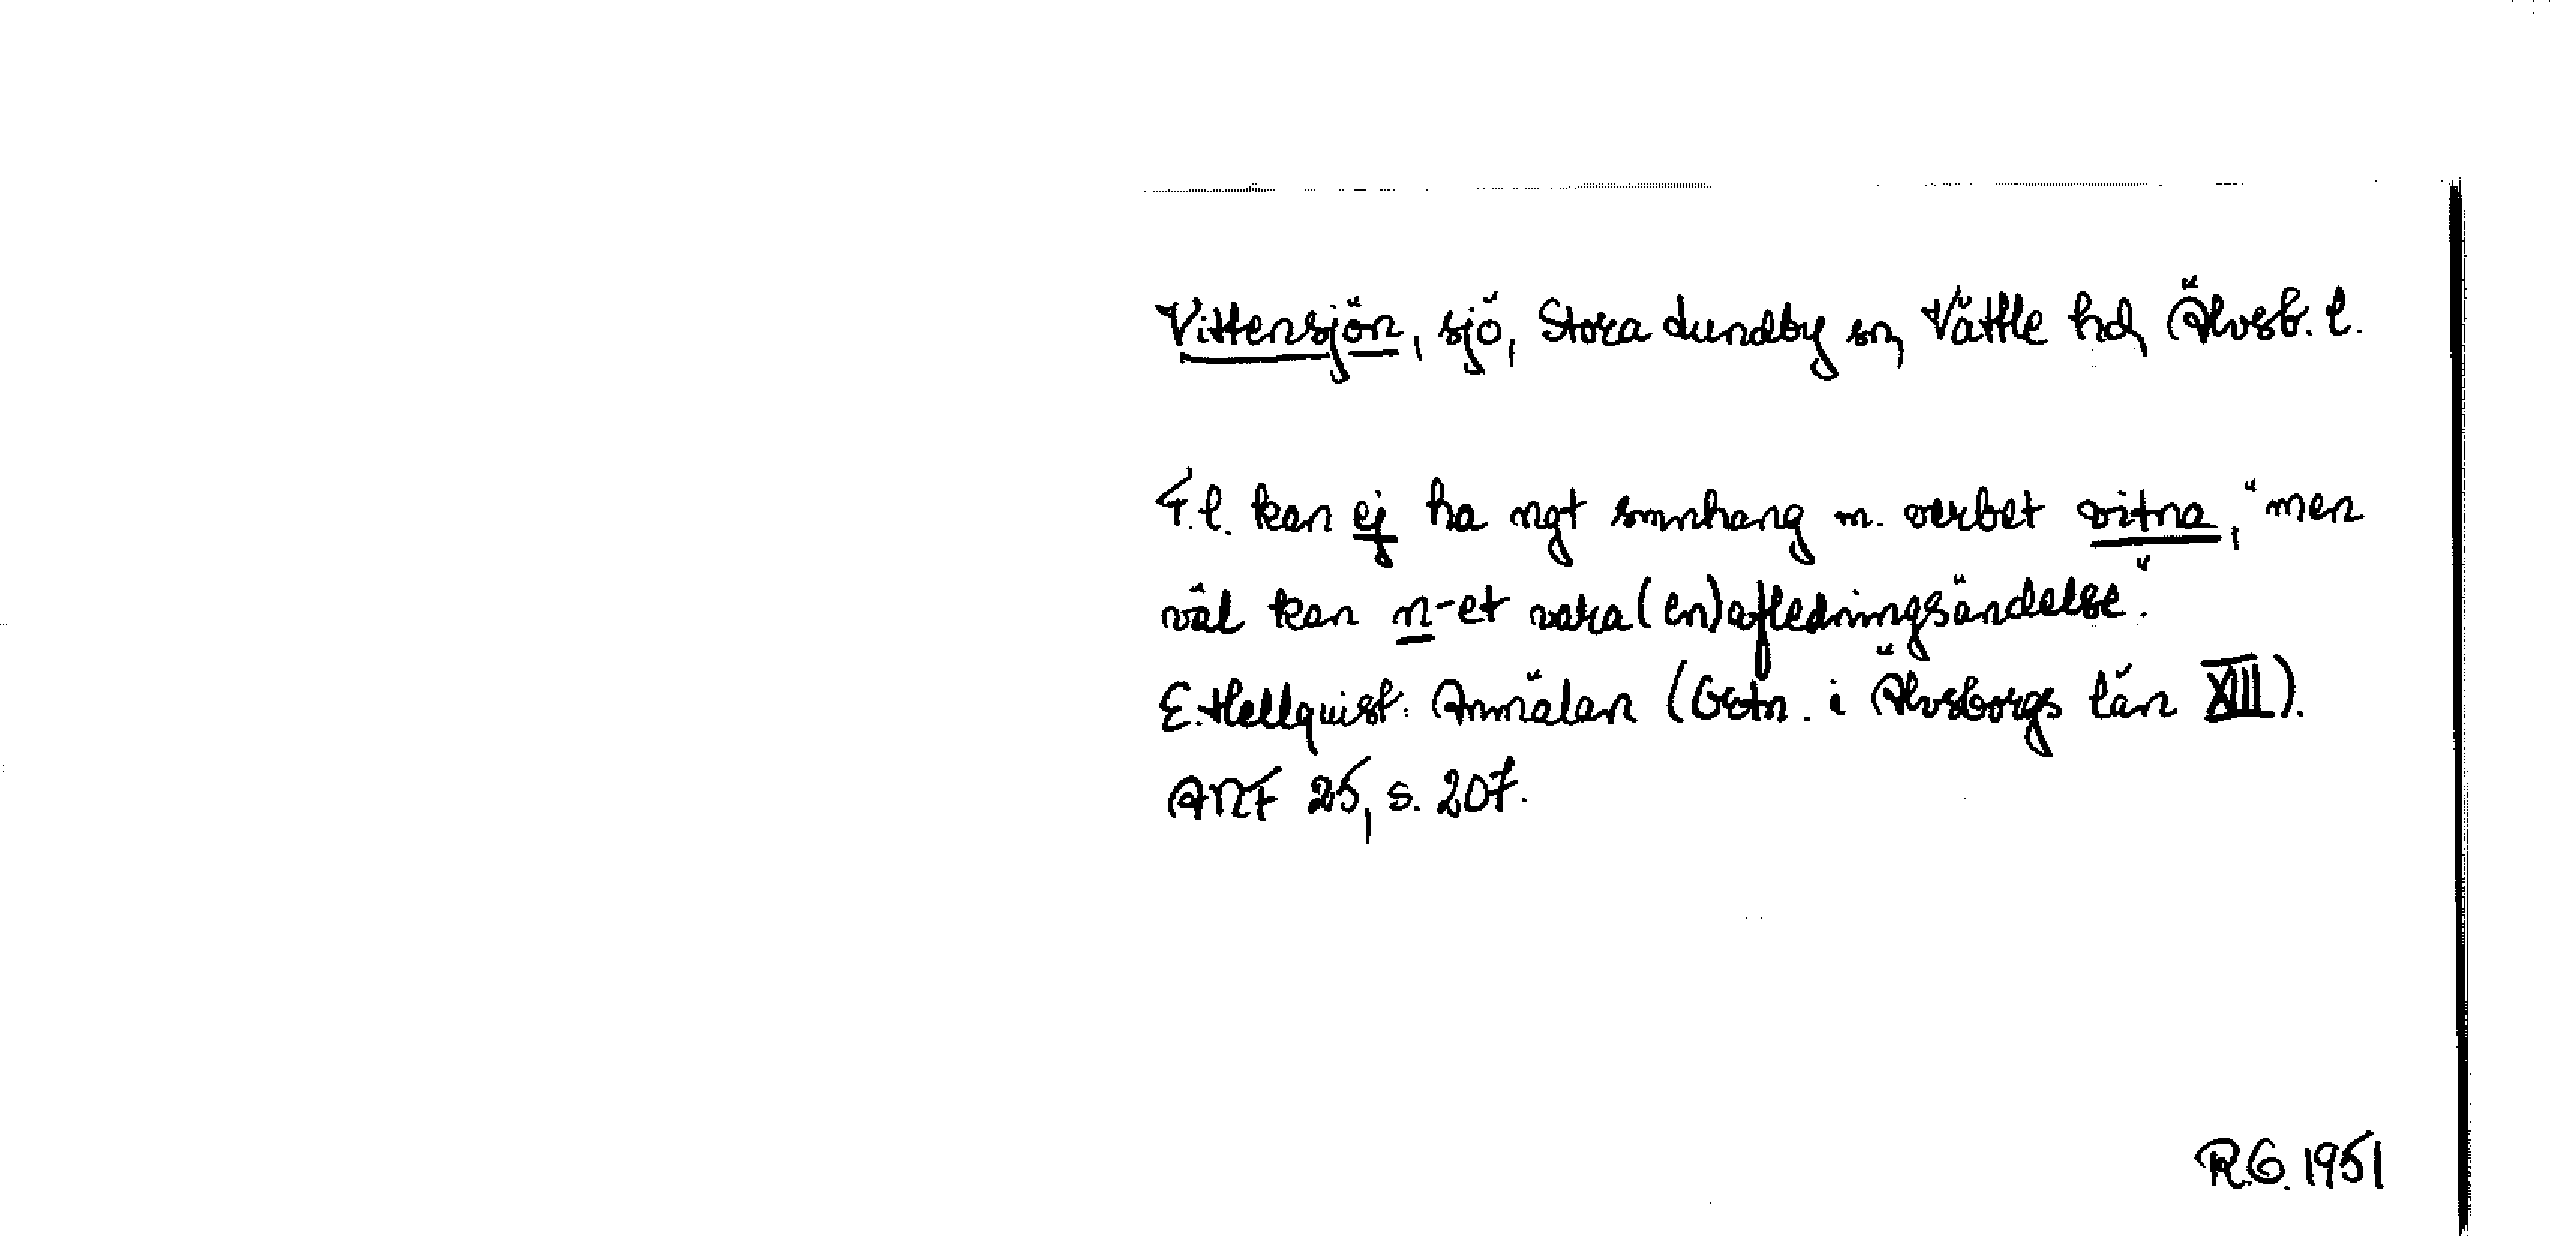 Vittensjön, sjö, Stora Lundby sn, Vättle hd, Älvsb. l.
F.l. kan ej ha ngt smnhang m. verbet vitna, "men
väl kan n-et vara (en) afledningsändelse."
E. Hellquist: Anmälan (Ortn. i Älvsborgs län XIII).
ANF 25, s. 207.
R.G. 1951